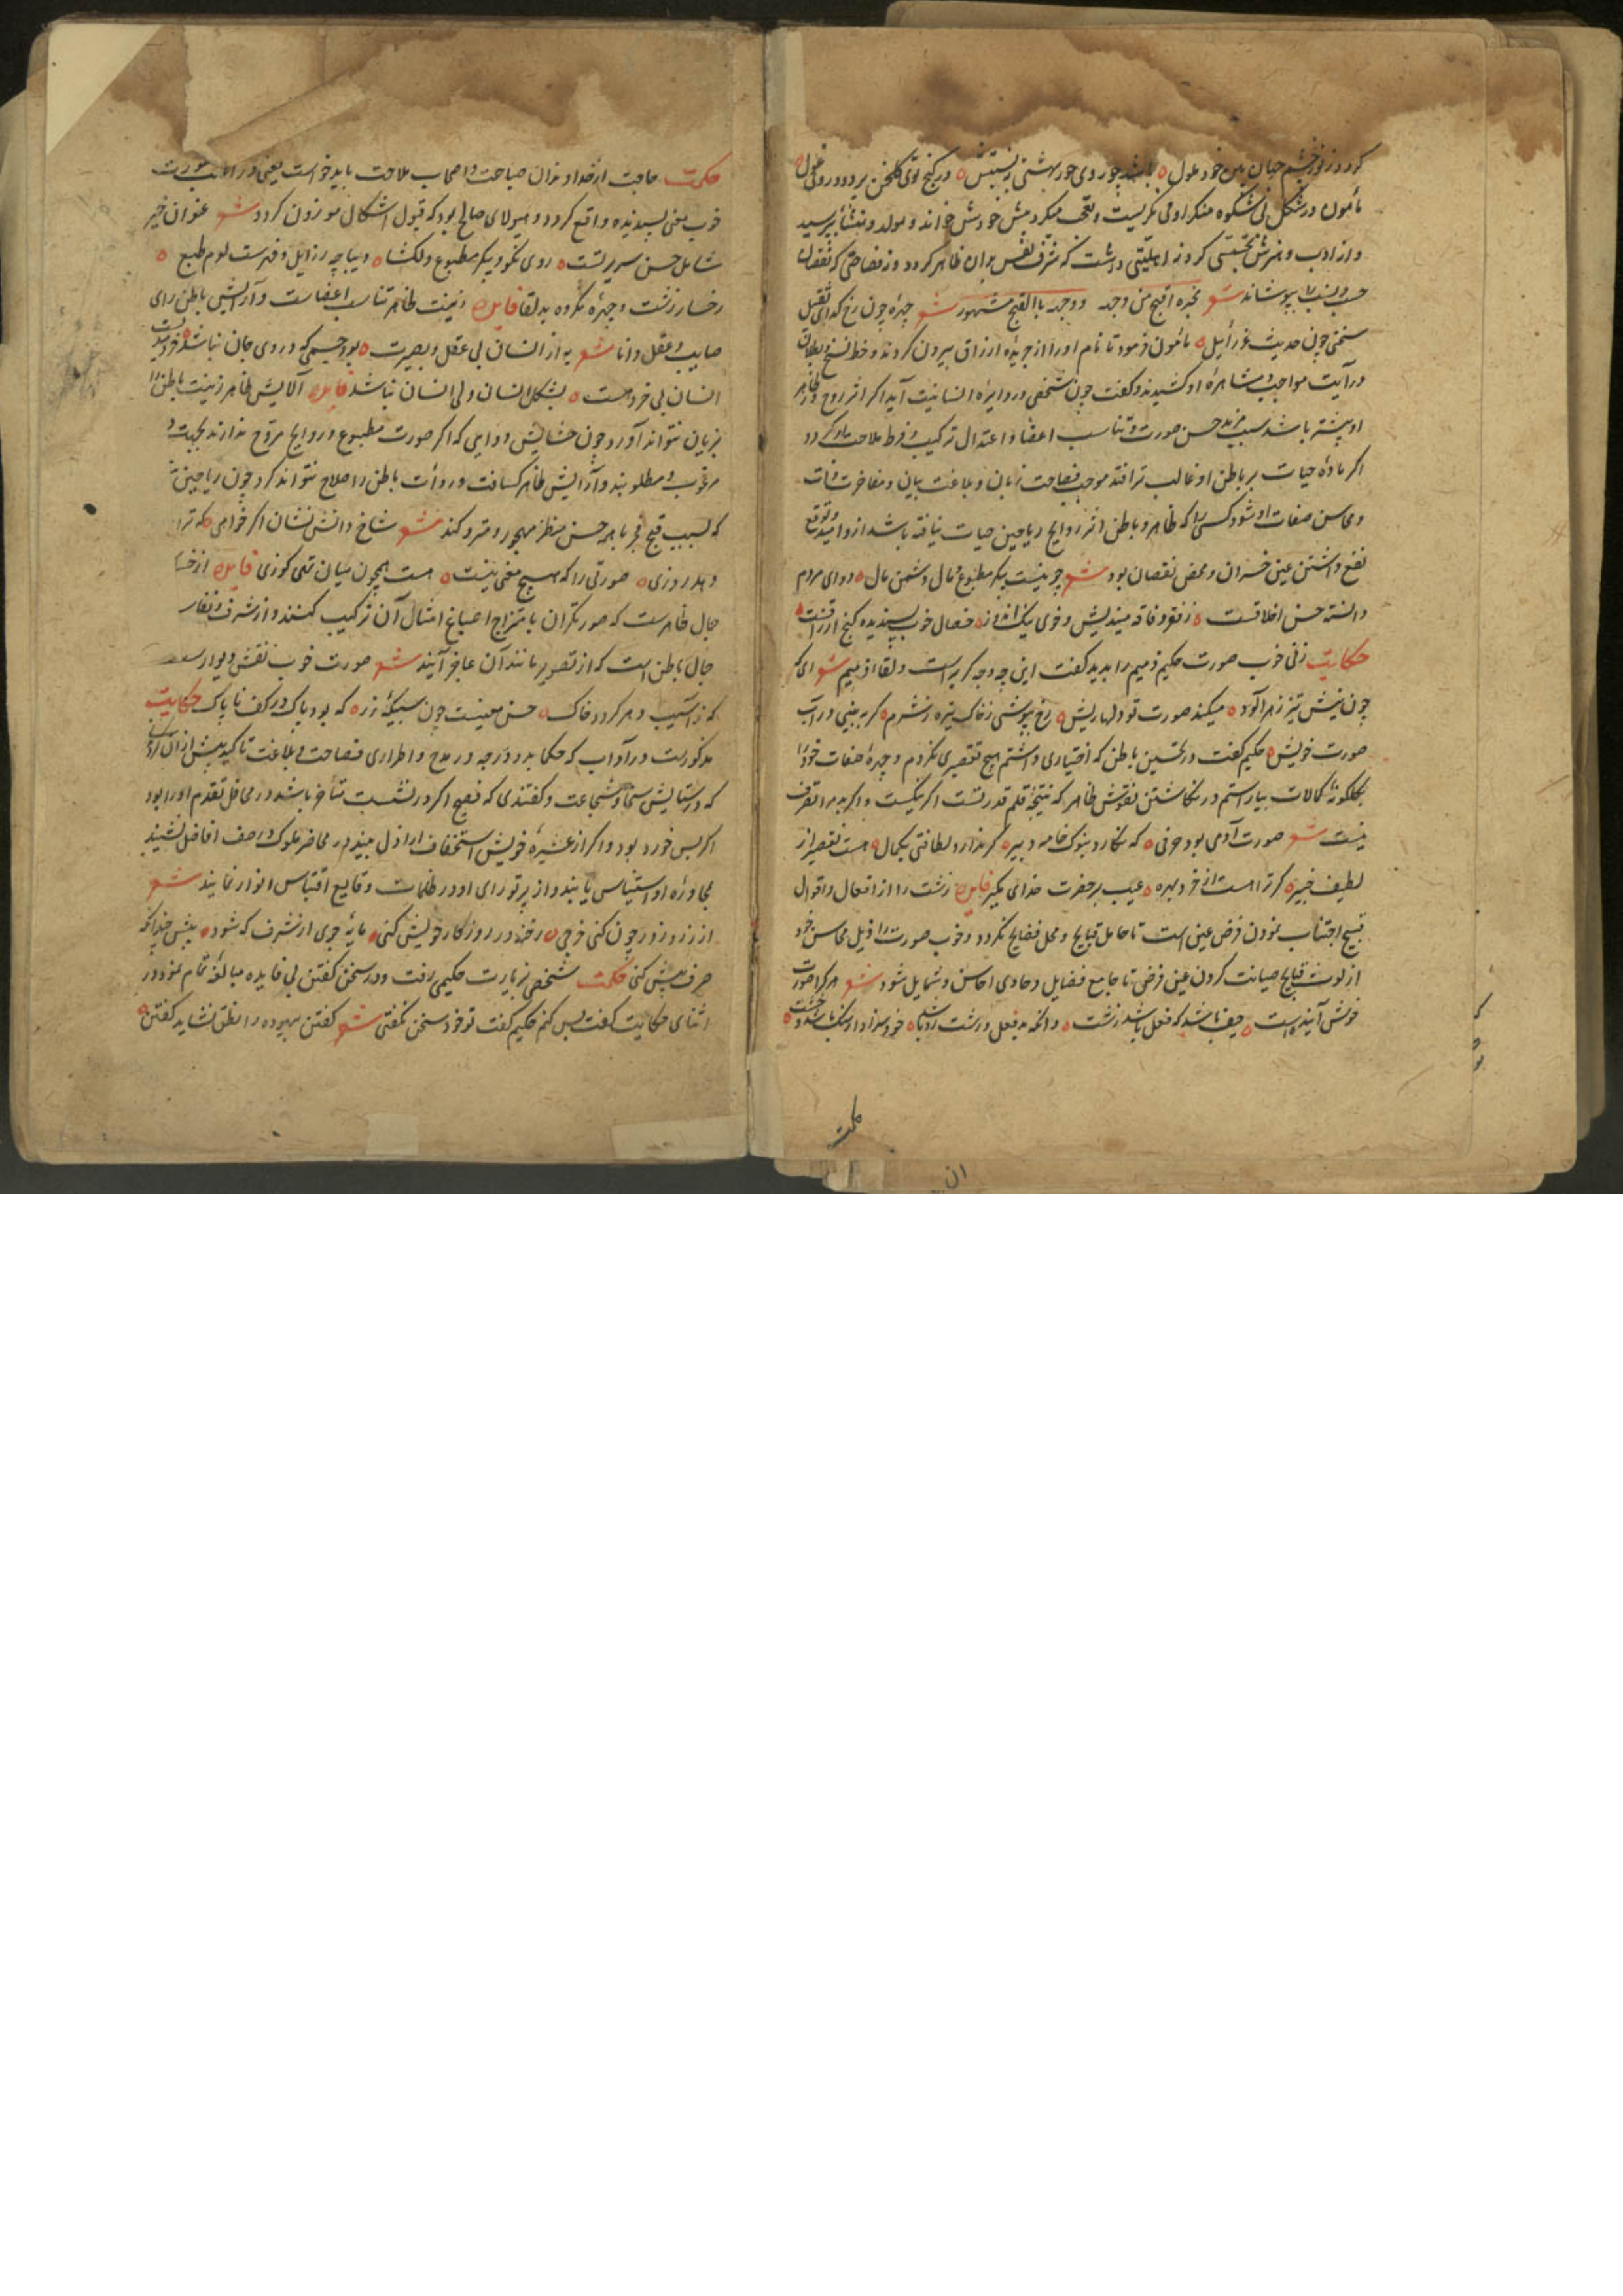 کردد ز نور چشم جهان بین خود ملول باشد چو روی حور بهشتی زینتش در کنج توی گلخن پر دود روی غول
مأمون در شکل بی شکوه منکر او می نکریست و تعجب میکرد پیش خودش خواند و مولد و منشأ پرسید
و از ادب و هنرش تجسس کرد اهلیتی داشت که شرف نفس بدان ظاهر کردد و نه فصاحتی که نقصان
حسب و نسب را بپوشاند شعر مخبره اقبح من وجهه ووجهه بالقبح مشهور شعر چهره چون رخ کدای ثقیل
سخنی چون حدیث عزرائیل مأمون فرمود تا نام او را از جریده ارزاق بیرون کردند و خط نسخ و بطلان
در آیت مواجب و مشاهره او کشیدند و گفت چون شخصی در دایره انسانیت آید اکر اثر روح در ظاهر
او بیشتر باشد سبب مزید حسن صورت و تناسب اعضا و اعتدال ترکیب و فرط ملاحت او کردد
اکر ماده حیات بر باطن او غالب تر افتد موجب فصاحت زبان و بلاغت بیان و مفاخرت ذات
و محاسن صفات او شود کسی را که ظاهر و باطن اثر روایح ریاحین حیات نیافته باشد از و امید و توقع
نفع داشتن عین خسران و محض نقصان بود شعر چو نیست پیکر مطبوع و مال دشمن مال دوای مردم
دانسته حسن اخلاقست ز فقر و فاقه میندیش و خوی نیک اندوز خصال خوب پسندیده کنج ارزاقست
حکایت زنی خوب صورت حکیم ذمیم را بدید گفت این چه وجه کریه است و لقا ذمیم شعر ای که
چون نیش تیز زهرآلود میکند صورت تو دلها ریش رخ بپوشی ز خاک تیره ز شرم کر به بینی در آب
صورت خویش حکیم گفت در تحسین باطن که اختیاری داشتم هیچ تقصیری نکردم و چهره صفات خود را
بکلکونه کمالات بیاراستم در نکاشتن نقوش ظاهر که نتیجه قلم قدرتست اکر نیکست و اکر بد مرا تصرف
نیست شعر صورت آدمی بود حرفی که نکارد بنوک خامه دبیر کر ندارد لطافتی بکمال هست تقصیر از
لطیف خبیر کر ترا هست از خرد بهره عیب بر حضرت خدای مکیر فایده زشت را از افعال و اقوال
قبیح اجتناب نمودن فرض عین است تا حامل قبایح و محل فضایح نکردد و خوب صورت را ذیل محاسن خود
از لوث قبایح صیانت کردن عین فرض تا جامع فضایل و حاوی احاسن و شمایل شود شعر هر کرا صورت
خوش آینده است حیف باشد که فعل باشد زشت وانکه بد فعل و زشت رو باشد خود سزاوار سنک باشد و خشت
حکمت
حکمت حاجت از خداوندان صباحت و اصحاب ملاحت باید خواست یعنی در اغلب صورت
خوب معنی پسندیده واقع کردد و هیولای صالح بود که قبول اشکال موزون کردد شعر عنوان خیر
شامل حسن سریرتست روی نکو و پیکر مطبوع و دلکشا دیباچه رذایل و فهرست لوم طبع
رخسار زشت و چهره مکروه بد لقا فایده زینت ظاهر تناسب اعضاست و آرایش باطن رای
صایب و عقل دانا شعر به از انسان بی عقل و بصیرت بود جسمی که در وی جان نباشد خردست
انسان بی خرد هست بشکل انسان ولی انسان نباشد فایده آلایش ظاهر زینت باطن را
زیان نتواند آورد چون حشایش و دوایی که اکر صورت مطبوع و روایح مروح ندارند بجیت
مرغوب و مطلوبند و آرایش ظاهر کسافت و ردأت باطن را صلاح نتواند کرد چون ریاحین
که بسبب قبح مخبر با همه حسن منظر مهجور و مترد کند شعر شاخ دانش نشان اکر خواهی که ترا
دهد روزی صورتی را که هیچ معنی نیست هست همچون میان تهی کوزی فایده از خسا
جال ظاهرست که صورتکران بامتزاج اصباغ امثال آن ترکیب کنند و از شرف و نفاس
جال باطن است که از تصویر مانند آن عاجز آیند شعر صورت خوب نقش دیوارست
که ز آسیب دهر کردد خاک حسن معنیست چون سبیکه زر که بود پاک در کف ناپاک حکایت
مذکورست در آداب که حکما بدو درجه در مدح و اطرای فصاحت و بلاغت تأکید بیش از آن کردند
که در ستایش سخا و شجاعت و گفتندی که فصیح اکر در نشست متأخر باشد در محافل تقدم او را بود
اکر بس خورد بود و اکر از عشیره خویش استخفاف و اراذل بیند در محاضر ملوک در صف افاضل نشیند
مجاوره او استیناس یابند و از پرتو رای او در ظلمات وقایع اقتباس انوار نمایند شعر
از زر و زور چون کنی خرجی رخنه در روزکار خویش کنی مایه جوی از شرف که شود بیش چندانکه
صرف بیش کنی حکمت شخصی بزیارت حکیمی رفت و در سخن کفتن بی فایده مبالغه تمام نمود در
اثنای حکایت گفت بس کنم حکیم گفت تو خود سخن نگفتی شعر کفتن بیهوده را نطق نشاید کفتن